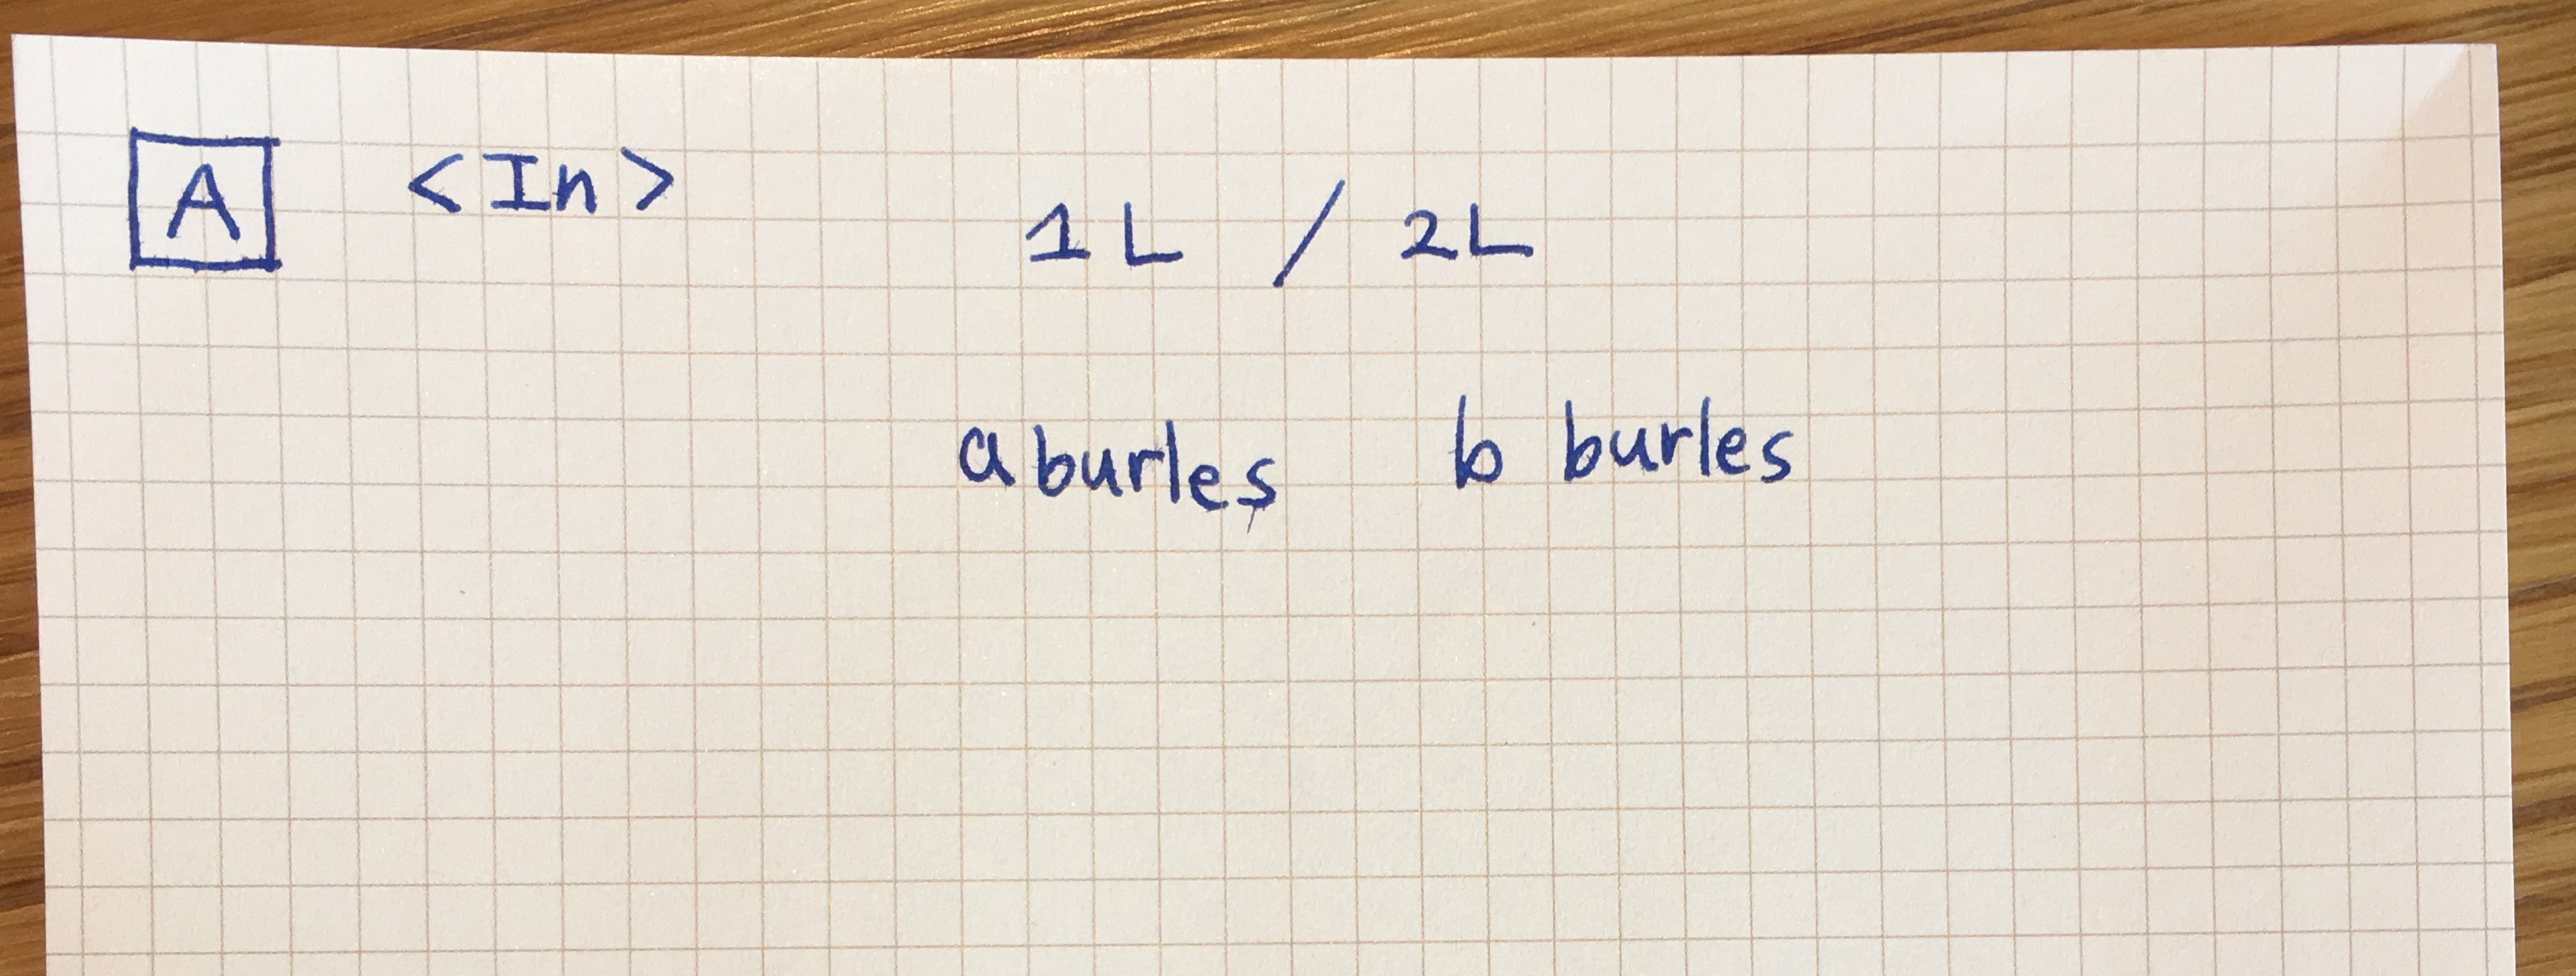 A <In>
1L / 2L
a burles b burles